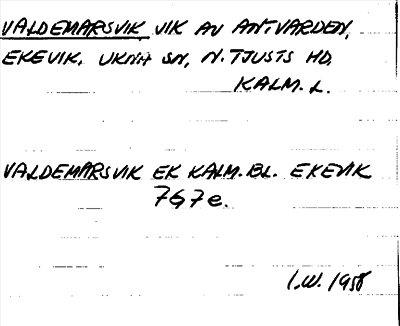 VALDEMARSVIK, VIK AV ANT.VARDEN,
EKEVIK. UKNA SN, N. TJUSTS HD,
KALM. L.
VALDEMARSVIK EK KALM. BL. EKEVIK
7G7e.
I.W. 1958